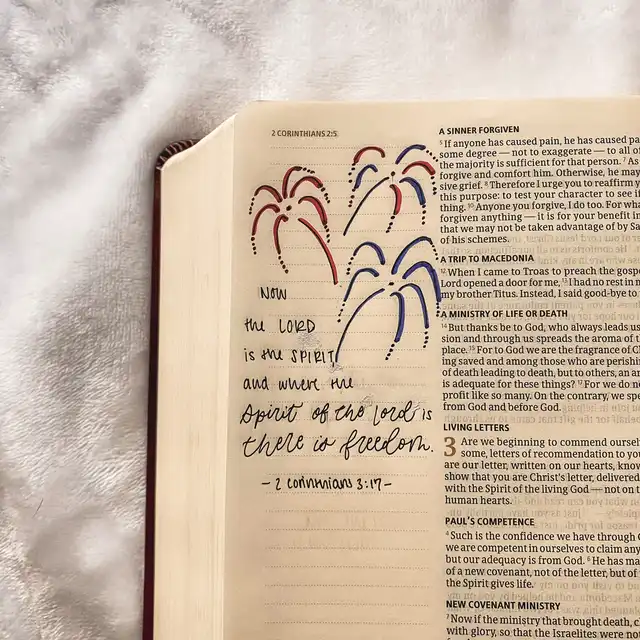 2 CORINTHIANS 2:5
Now
the LORD
is the SPIRIT
and where the
Spirit of the Lord is
there is freedom.
- 2 corinthians 3:17 -
A SINNER FORGIVEN
5 If anyone has caused pain, he has caused pa
some degree — not to exaggerate — to all of
the majority is sufficient for that person. 7 As
forgive and comfort him. Otherwise, he may
sive grief. 8 Therefore I urge you to reaffirm y
this purpose: to test your character to see if
thing. 10 Anyone you forgive, I do too. For wha
forgiven anything — it is for your benefit in
that we may not be taken advantage of by Sa
of his schemes.
A TRIP TO MACEDONIA
12 When I came to Troas to preach the gosp
Lord opened a door for me, 13 I had no rest in m
my brother Titus. Instead, I said good-bye to
A MINISTRY OF LIFE OR DEATH
14 But thanks be to God, who always leads us
sion and through us spreads the aroma of t
place. 15 For to God we are the fragrance of C
ing saved and among those who are perishin
of death leading to death, but to others, an ar
is adequate for these things? 17 For we do no
profit like so many. On the contrary, we spe
from God and before God.
LIVING LETTERS
3 Are we beginning to commend ourse
some, letters of recommendation to yo
are our letter, written on our hearts, know
show that you are Christ's letter, delivered
with the Spirit of the living God — not on t
human hearts.
PAUL'S COMPETENCE
4 Such is the confidence we have through C
we are competent in ourselves to claim any
but our adequacy is from God. 6 He has ma
of a new covenant, not of the letter, but of
the Spirit gives life.
NEW COVENANT MINISTRY
7 Now if the ministry that brought death, c
with glory, so that the Israelites were no